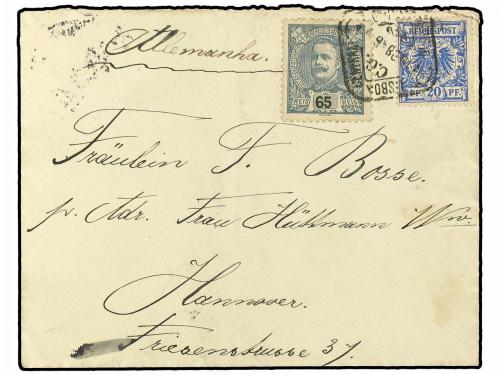 Allemanha.
CORREIOS
65
REIS
LISBOA
REICHSPOST
20 PF.
Fräulein F. Bosse.
p. Adr. Frau Hüttmann Ww.
Hannover.
Friesenstrasse 37.